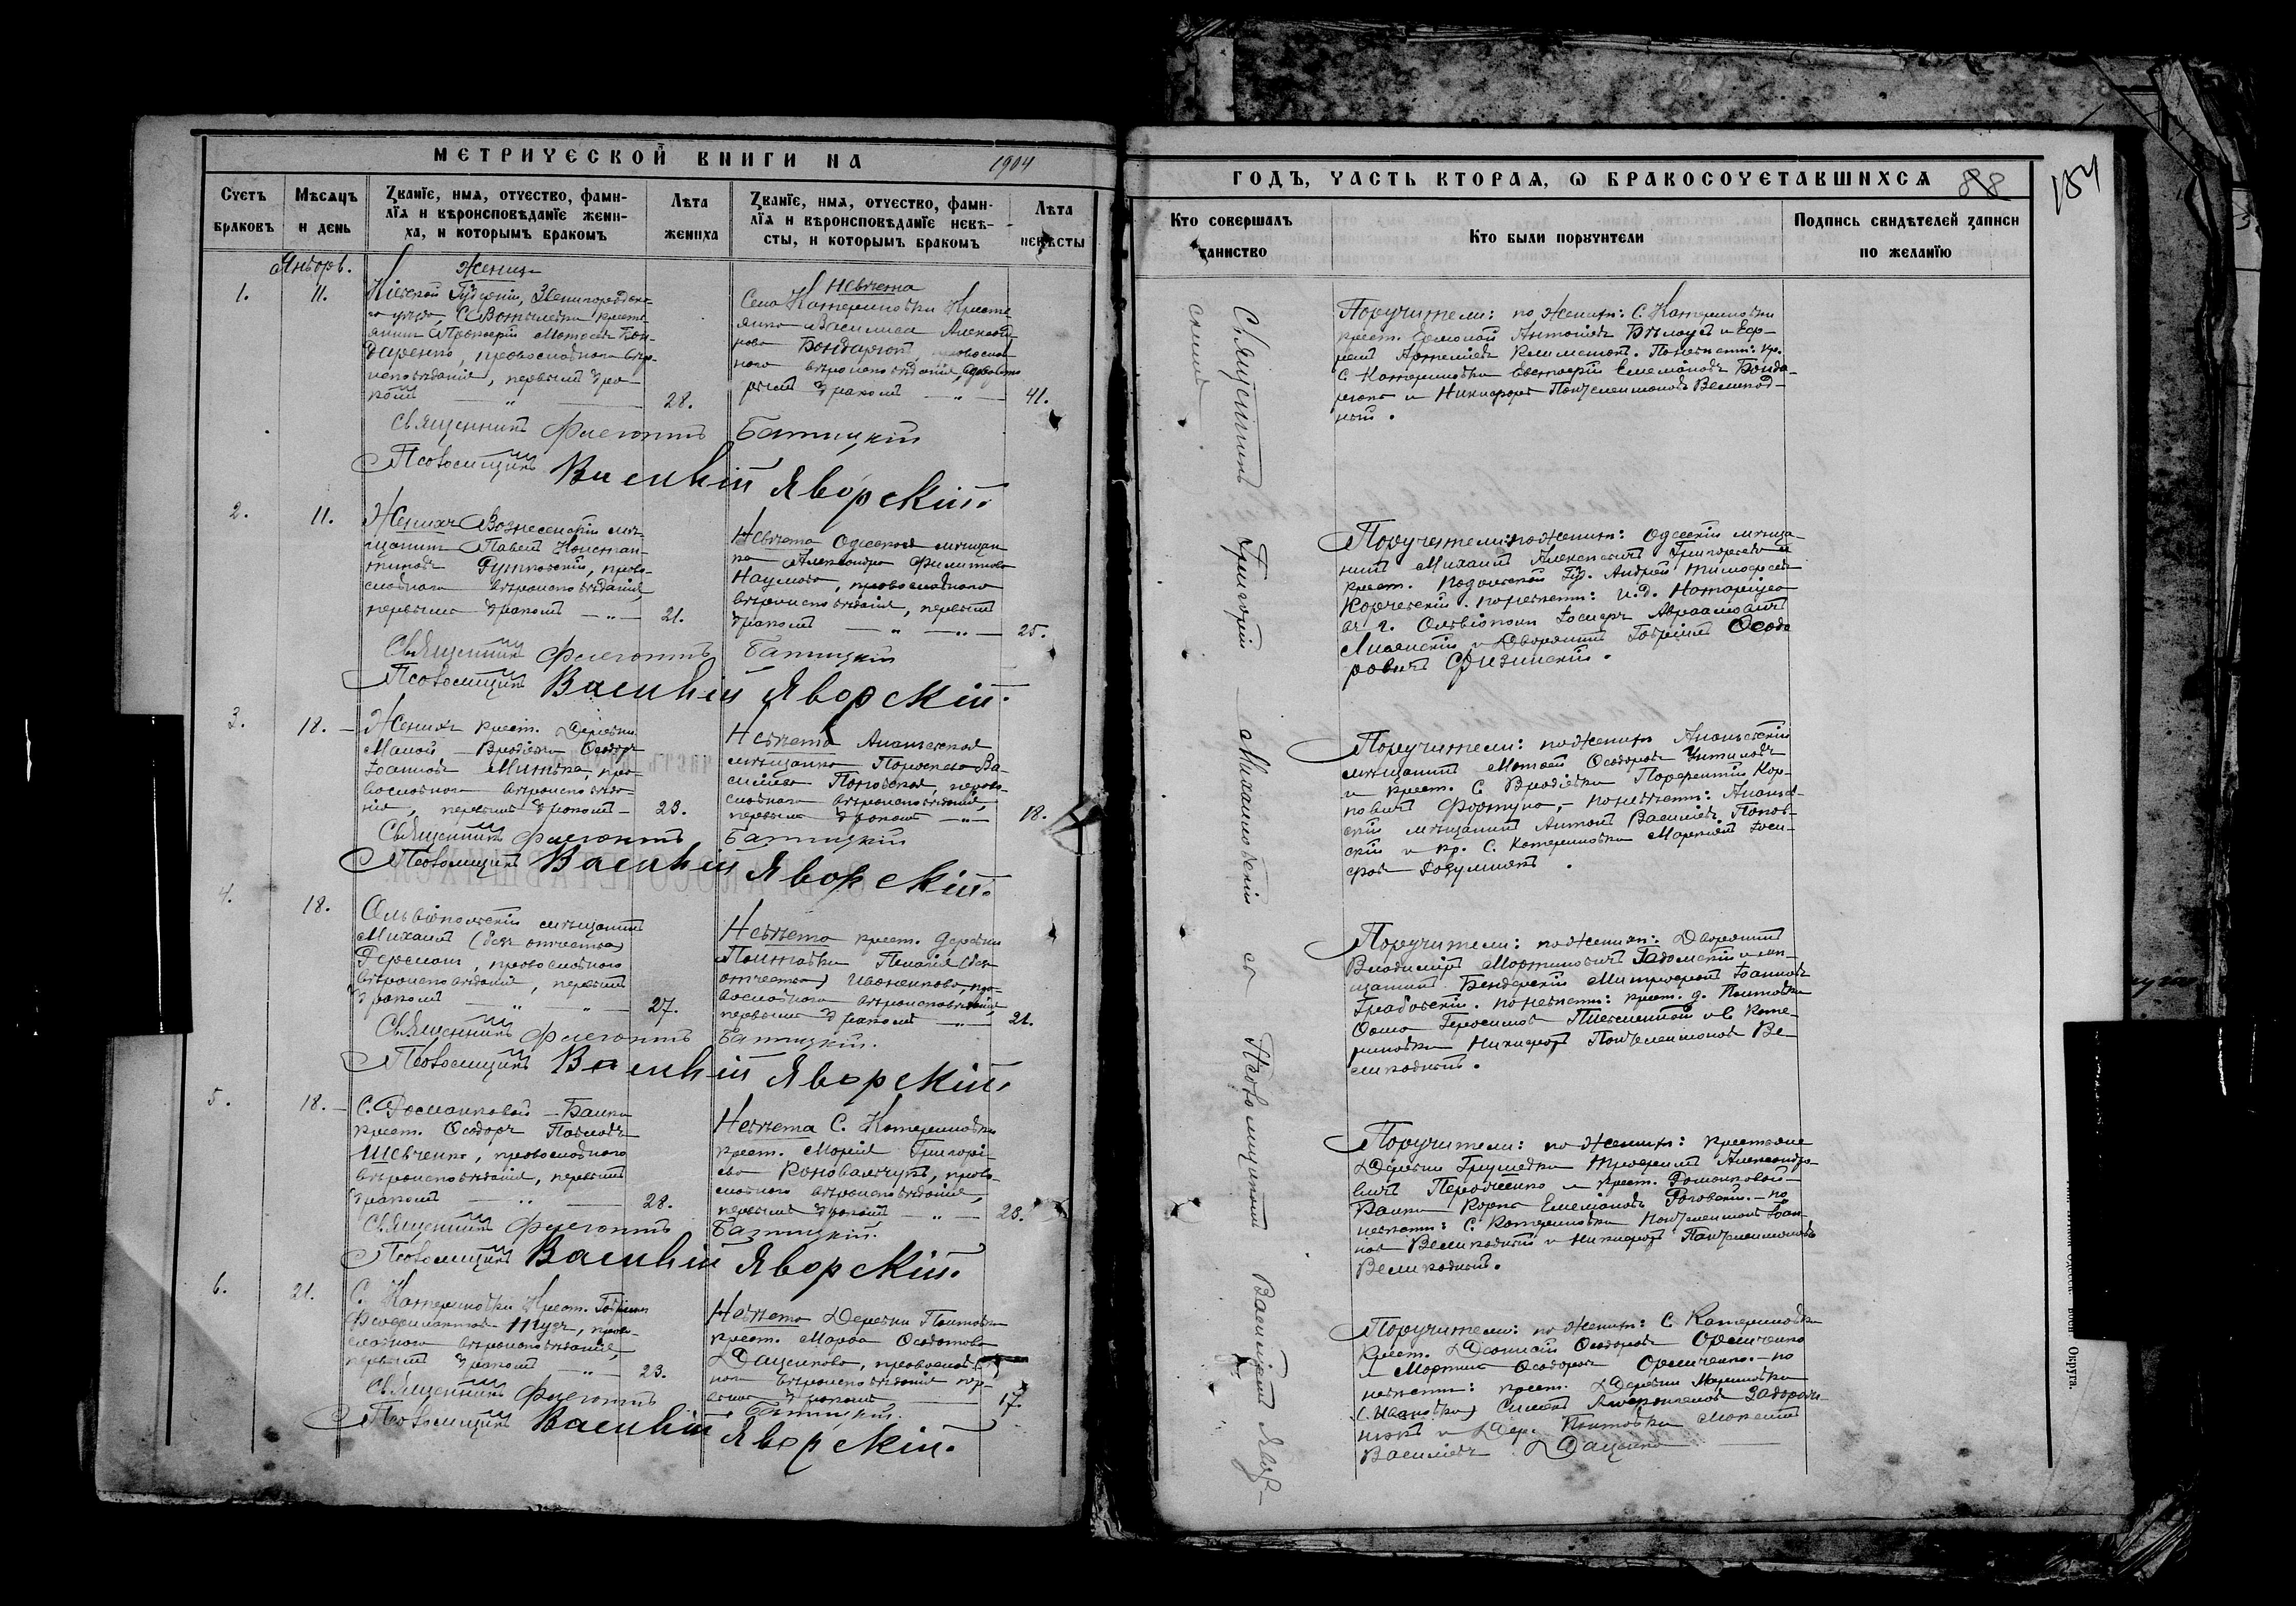 МЕТРИЧЕСКОЙ КНИГИ НА 1904
Счетъ браковъ
Мѣсяцъ и день
Званїе, имя, отчество, фамилїя и вѣроисповѣданїе жениха, и которымъ бракомъ
Лѣта жениха
Званїе, имя, отчество, фамилїя и вѣроисповѣданїе невѣсты, и которымъ бракомъ
Лѣта невѣсты
Январь.
1.
11.
Женихъ
Кіевской Губерніи, Звенигородска-
го уѣзда, С. кресть-
янинъ Прокопій Матѳеевъ Бон-
даренко, православнаго вѣро-
исповѣданія, первымъ бра-
комъ
28.
Невѣста
Села Катериновки Кресть-
янка Василиса
Бондарюкъ, православ-
наго вѣроисповѣданія,
бракомъ
41.
Священникъ Флегонтъ Батицкій
Псаломщикъ Василій Яворскій.
2.
11.
Женихъ Вознесенскій мѣ-
щанинъ Павелъ Констан-
тиновъ Рутковскій, право-
славнаго вѣроисповѣданія,
первымъ бракомъ
21.
Невѣста Одесская мѣщан-
ка Александра Филиппова
Наумова, православнаго
вѣроисповѣданія, первымъ
бракомъ
25.
Священникъ Флегонтъ Батицкій
Псаломщикъ Василій Яворскій.
3.
18.
Женихъ крест. Деревни
Малой-Врадіевки Ѳеодоръ
Іоанновъ Митька, пра-
вославнаго вѣроисповѣда-
нія, первымъ бракомъ
23.
Невѣста Ананьевская
мѣщанка Параскева Ва-
силіева Поповская, право-
славнаго вѣроисповѣданія,
первымъ бракомъ
18.
Священникъ Флегонтъ Батицкій
Псаломщикъ Василій Яворскій.
4.
18.
Ольвіопольскій мѣщанинъ
Михаилъ (безъ отчества)
Герман, православнаго
вѣроисповѣданія, первымъ
бракомъ
27.
Невѣста крест. деревни
Платовки Пелагія (безъ
отчества) Иваненкова, пра-
вославнаго вѣроисповѣданія,
первымъ бракомъ
21.
Священникъ Флегонтъ Батицкій.
Псаломщикъ Василій Яворскій.
5.
18.
С. Романковой-Балки
крест. Ѳеодоръ Павловъ
Шевченко, православнаго
вѣроисповѣданія, первымъ
бракомъ
28.
Невѣста С. Катериновки
крест. Марія Григорі-
ева Коновальчукъ, право-
славнаго вѣроисповѣданія,
первымъ бракомъ
23.
Священникъ Флегонтъ Батицкій.
Псаломщикъ Василій Яворскій.
6.
21.
С. Катериновки Крест. Гавріилъ
Ѳеофилактовъ право-
славнаго вѣроисповѣданія,
первымъ бракомъ
23.
Невѣста Деревни Платовки
крест. Марѳа
Даценкова, православ-
наго вѣроисповѣданія пер-
вымъ бракомъ
17.
Священникъ Флегонтъ Батицкій.
Псаломщикъ Василій Яворскій.
ГОДЪ, ЧАСТЬ ВТОРАЯ, Ѡ БРАКОСОЧЕТАВШИХСЯ
88
184
Кто совершалъ таинство
Кто были поручители
Подпись свидѣтелей записи по желанїю
Священникъ Григорій Михайловскій съ Псаломщикомъ Василіемъ Явор-
скимъ
Поручители: по женихѣ: С. Катериновки
крест. Ермолай Антоніевъ Бѣлоусъ и Еф-
ремъ Артеміевъ По невѣстѣ: кр.
С. Катериновки Евстафій Емеліановъ Бонда-
рюкъ и Никифоръ Пантелеимоновъ Великод-
ный.
Поручители: по женихѣ: Одесскій мѣща-
нинъ Михаилъ Алексѣевъ Григорьевъ и
крест. Подольской Губ. Андрей Тимофеевъ
по невѣстѣ: и. д. Нотаріуса
въ г. Ольвіополѣ Іосифъ Авраамовичъ
и Дворянинъ Гавріилъ Ѳеодо-
ровичъ
Поручители: по женихѣ Ананьевскій
мѣщанинъ Матѳей Ѳеодоровъ
и крест. С. Врадіевки Порфирій Кар-
повичъ Фортуна, - по невѣстѣ: Ананьев-
скій мѣщанинъ Антонъ Василіевъ Попов-
скій и кр. С. Катериновки Маркіанъ Іоси-
фовъ
Поручители: по женихѣ: Дворянинъ
Владиміръ Мартиновичъ Гадомскій и мѣ-
щанинъ Бендерскій Митрофанъ Іоанновъ
Грабовскій. по невѣстѣ: крест. д. Платовки
Ѳома Герасимовъ и С. Кате-
риновки Никифоръ Пантелеимоновъ Ве-
ликодный.
Поручители: по женихѣ: крестьяне
Деревни Грушевки Трофимъ Александро-
вичъ и крест. Романковой-
Балки Карпъ Емеліановъ - по
невѣстѣ: С. Катериновки Пантелеимонъ Іоан-
новъ Великодный и Никифоръ Пантелеимоновъ
Великодный.
Поручители: по женихѣ: С. Катериновки
Крест. Діонисій Ѳеодоровъ Орличенко
и Мартинъ Ѳеодоровъ Орличенко. - по
невѣстѣ: крест. Деревни Мариновки
(Ивановки) Симеонъ Задорож-
и Дер. Платовки
Василіевъ Даценко
Округа.